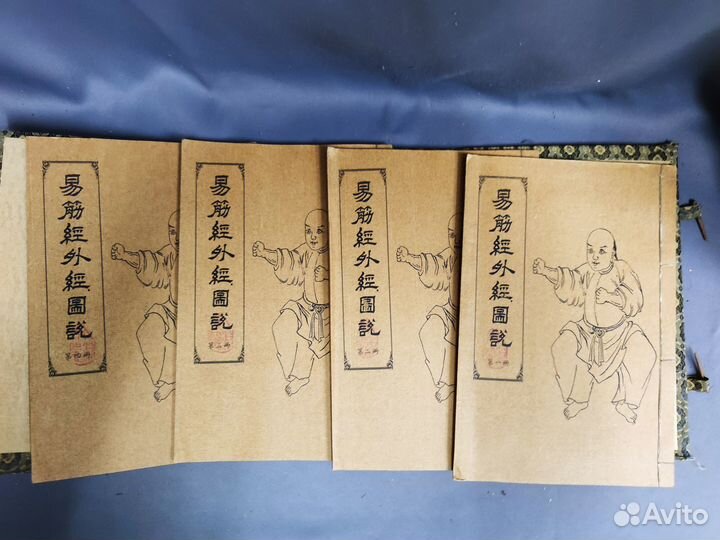 易筋經外經圖說
第四册
易筋經外經圖說
第三册
易筋經外經圖說
第二册
易筋經外經圖說
第一册
Avito